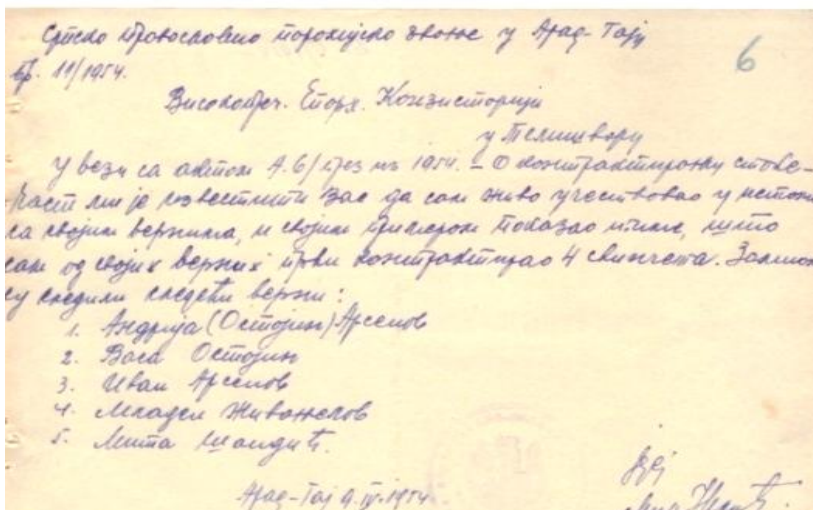 Српско православно парохијско звање у Арад-Гају
Бр. 11/1954.
6
Високопреч. Епарх. Конзисторији
у Темишвару
У вези са актом А.6/през из 1954. – О контрактирању стоке –
Част ми је известити Вас да сам живо учествовао у истом
са својим вернима, и својим примером показао тиме, што
сам од својих верних први контрактирао 4 свинчета. За мном
су следили следећи верни:
1. Андрија (Остојин) Арсенов
2. Васа Остојин
3. Иван Арсенов
4. Младен Живанелов
5. Мита Шандић.
Арад-Гај 9.IV.1954